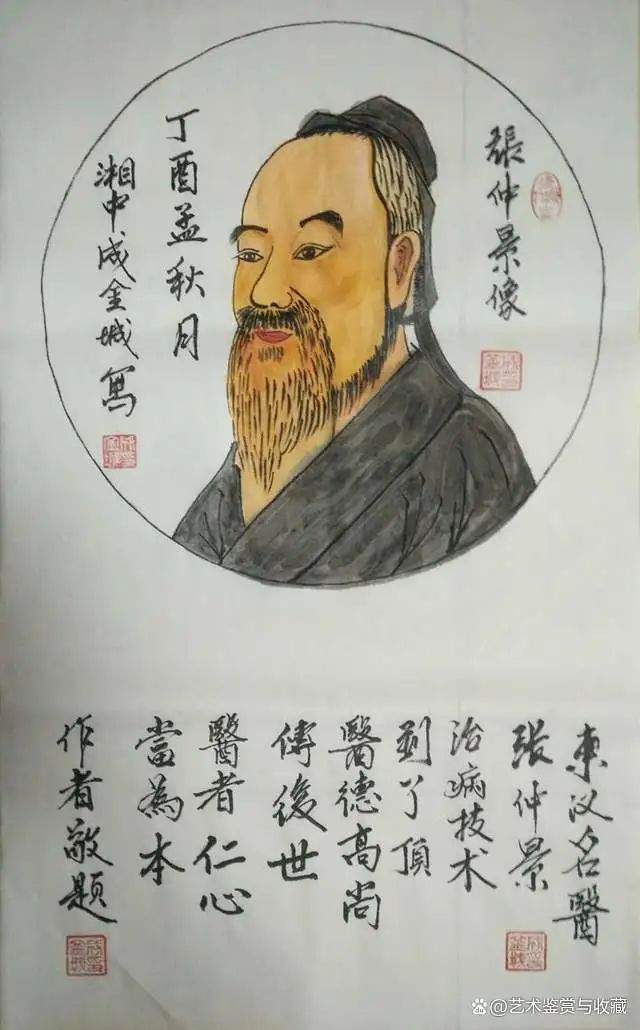 張仲景像
丁酉孟秋月
湘中成金城寫
東汉名醫
張仲景
治病技术
到了頂
醫德高尚
傳後世
醫者仁心
當為本
作者敬題
艺术鉴赏与收藏